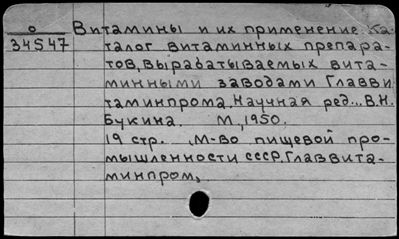 о Витамины и их применение. Ка-
34547 талог витаминных препара-
тов, вырабатываемых вита-
минными заводами Главви
таминпрома. Научная ред... В.Н.
Букина. М., 1950.
19 стр. М-во пищевой про-
мышленности СССР. Главвита-
минпром,